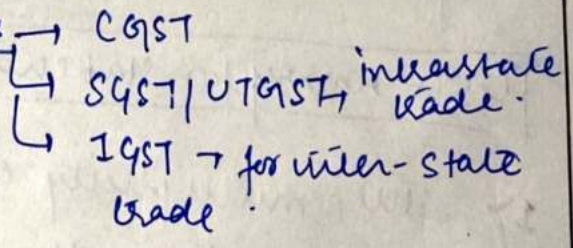 → CGST
→ SGST/UTGST→ intrastate trade.
→ IGST → for inter-state
trade.